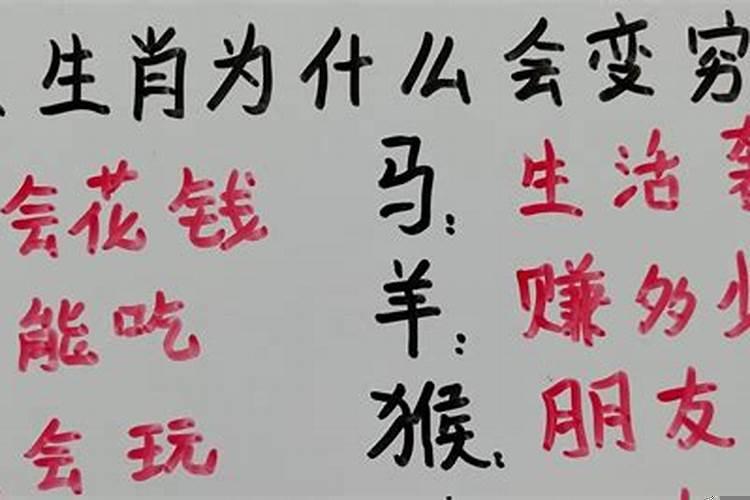 生肖为什么会变穷
会花钱 马: 生活
能吃 羊: 赚多少
会玩 猴: 朋友